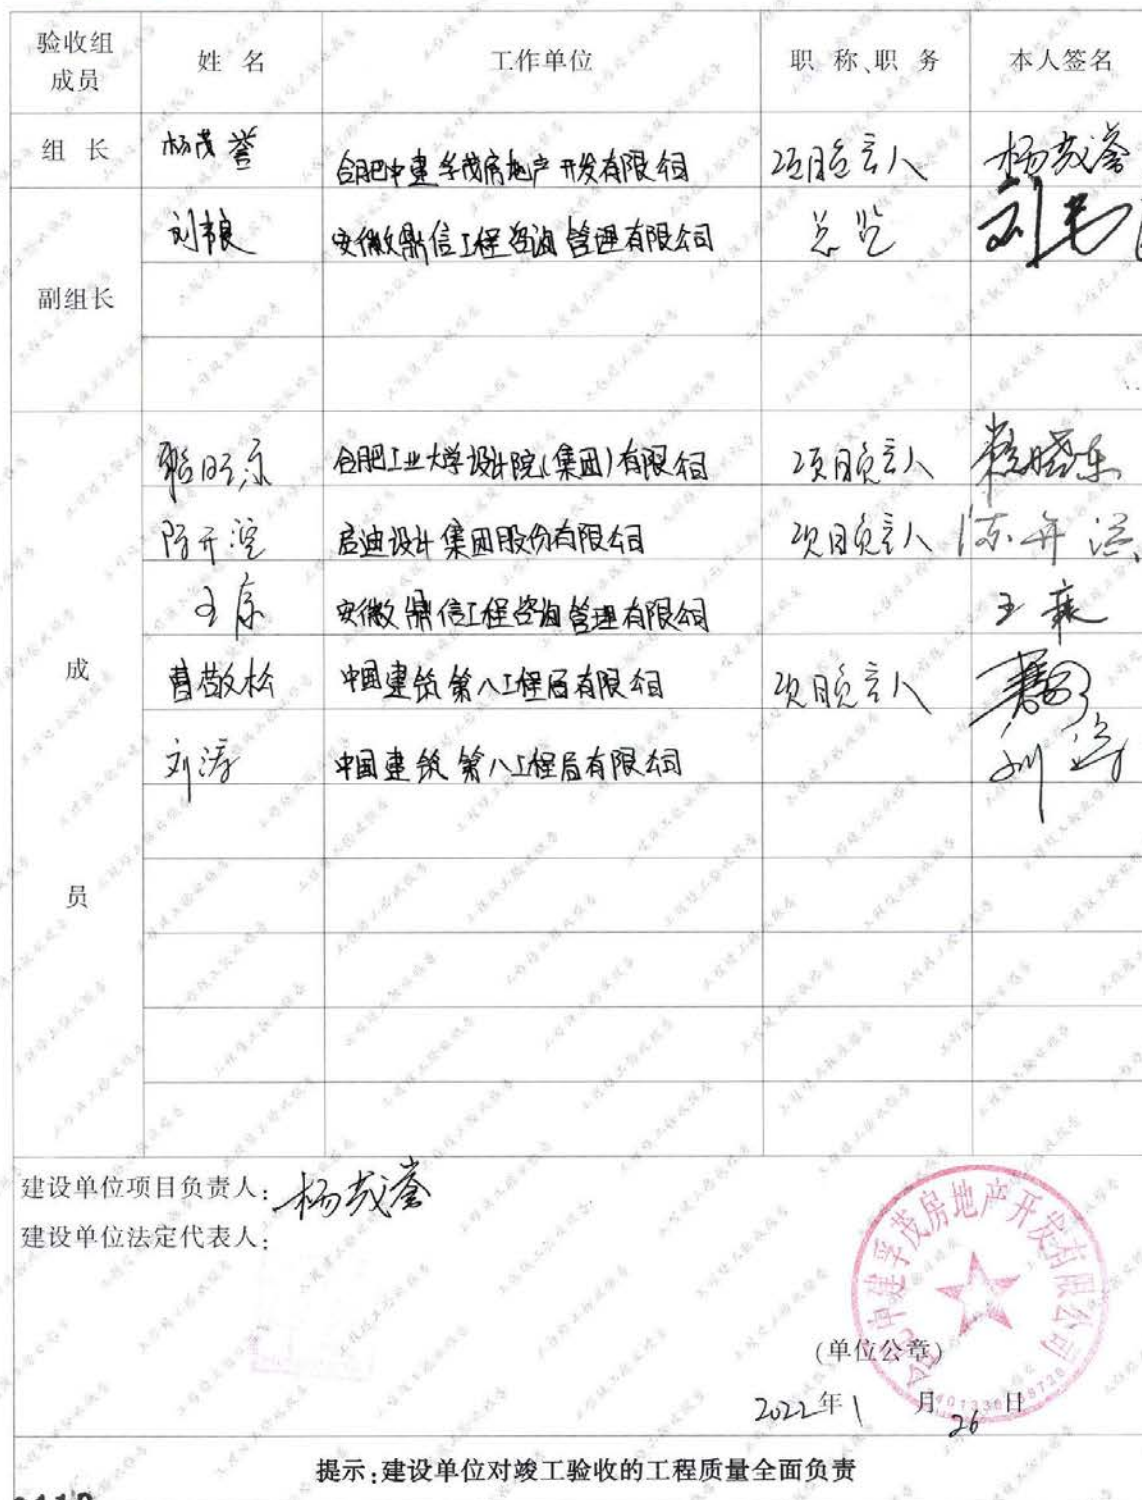 验收组成员 姓 名 工作单位 职 称、职 务 本人签名
组 长 杨茂誉 合肥中建孚茂房地产开发有限公司 项目负责人 杨茂誉
副组长 刘韦良 安徽鼎信工程咨询管理有限公司 总监
成员
合肥工业大学设计院(集团)有限公司 项目负责人
启迪设计集团股份有限公司 项目负责人
王康 安徽鼎信工程咨询管理有限公司 王康
曹敬松 中国建筑第八工程局有限公司 项目负责人
刘涛 中国建筑第八工程局有限公司 刘涛
建设单位项目负责人: 杨茂誉
建设单位法定代表人:
合肥中建孚茂房地产开发有限公司
(单位公章)
2022年1月26日
提示:建设单位对竣工验收的工程质量全面负责